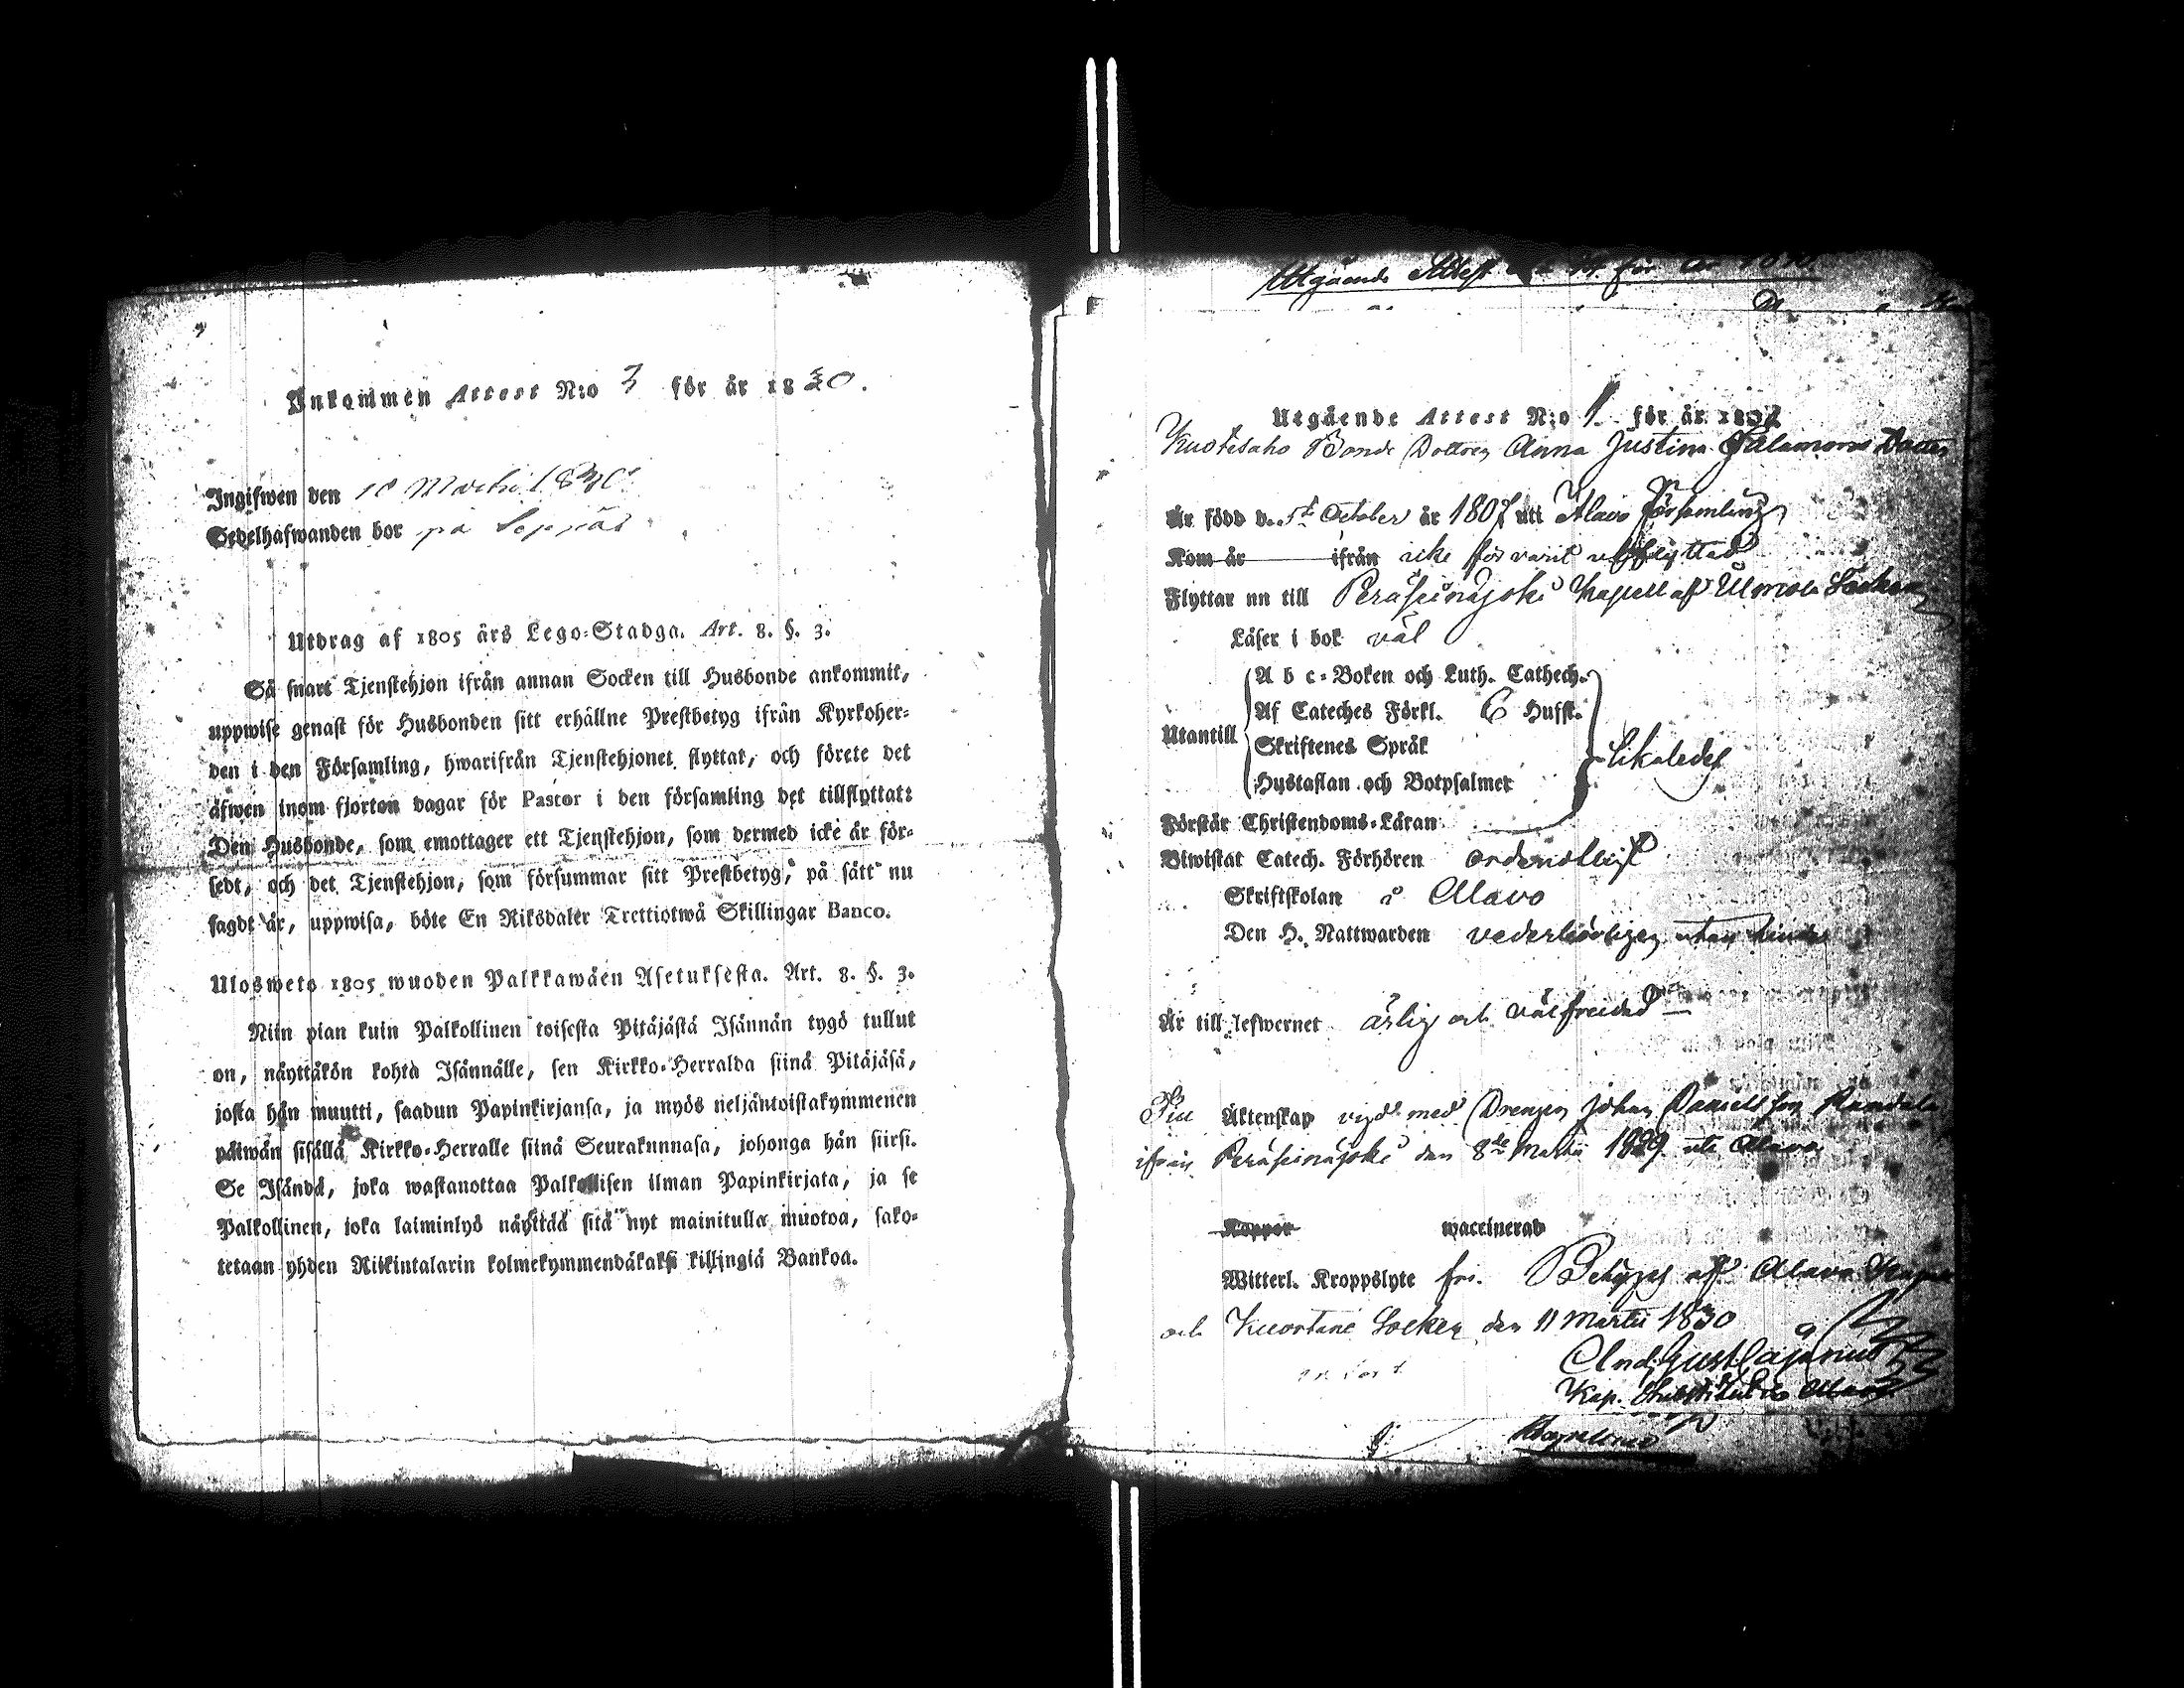 Inkommen Attest N:o 3 för år 1830.
Ingifwen den 18 Martii 1830
Sedelhafwanden bor på Seppäs
Utdrag af 1805 års Lego-Stadga. Art. 8. §. 3.
Så snart Tjenstehjon ifrån annan Socken till Husbonde ankommit,
uppwise genast för Husbonden sitt erhållne Prestbetyg ifrån Kyrkoher-
den i den Församling, hwarifrån Tjenstehjonet flyttat, och förete det
äfwen inom fjorton dagar för Pastor i den församling det tillflyttat:
Den Husbonde, som emottager ett Tjenstehjon, som dermed icke är för-
sedt, och det Tjenstehjon, som försummar sitt Prestbetyg, på sätt nu
sagdt är, uppwisa, böte En Riksdaler Trettiotwå Skillingar Banco.
Ulosweto 1805 wuoden Palkkawäen Asetuksesta. Art. 8. §. 3.
Niin pian kuin Palkollinen toisesta Pitäjästä Isännän tygö tullut
on, näyttäkön kohta Isännälle, sen Kirkko-Herralda siinä Pitäjäsä,
josta hän muutti, saadun Papinkirjansa, ja myös neljäntoistakymmenen
päiwän sisällä Kirkko-Herralle siinä Seurakunnasa, johonga hän siirsi.
Se Isändä, joka wastanottaa Palkollisen ilman Papinkirjata, ja se
Palkollinen, joka laiminlyö näyttää sitä nyt mainitulla muotoa, sako-
tetaan yhden Riikintalarin kolmekymmendäkaksi killingiä Bankoa.
Utgående Attest för år
Utgående Attest N:o 1. för år 183
Bonde Dottren Anna Justina Salamons Dotter
Är född d. 5te October år 1807 uti Alavo församling
Kom år ifrån icke förr varit utflyttad
Flyttar nu till Peräseinäjoki Kapell af Ilmola Socken
Läser i bok väl
Utantill
A b c-Boken och Luth. Cathech.
Af Cateches Förkl. 6 Hufst.
Skriftenes Språk
Hustaflan och Botpsalmer
likaledes
Förstår Christendoms-Läran
Biwistat Catech. Förhören ordentligt
Skriftskolan i Alavo
Den H. Nattwarden vederbörligen utan hinder
Är till lefwernet ärlig och välfrejdad
Till Äktenskap vigd med Drengen Johan Danielsson
ifrån Peräseinäjoki den 8de Martii 1829 uti Alavo
Koppor waccinerad
Witterl. Kroppslyte fri. Betygas af Alavo
och Kuortane Socken den 11 Martii 1830
And. Gust. Cajanus
Kap. Substitut i Alavo